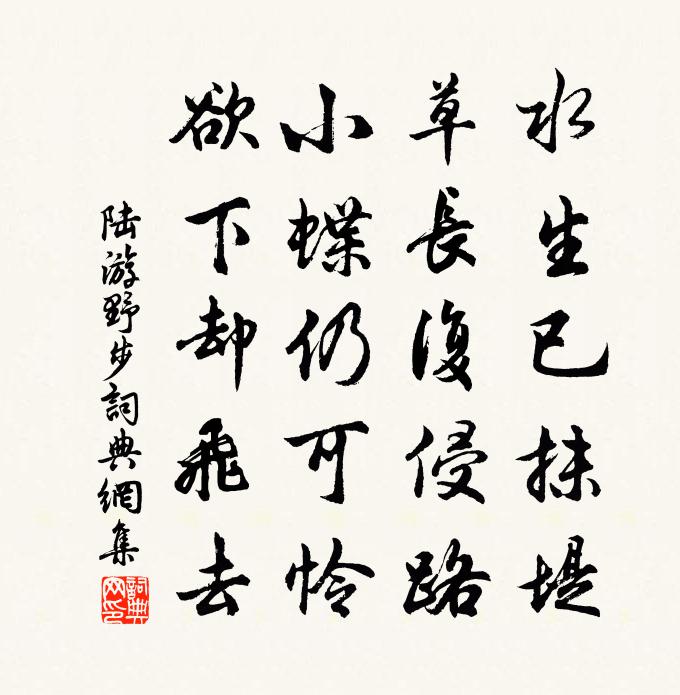 水生已抹堤
草長復侵路
小蝶仍可怜
欲下却飛去
陆游野步詞典網集
詞典網印